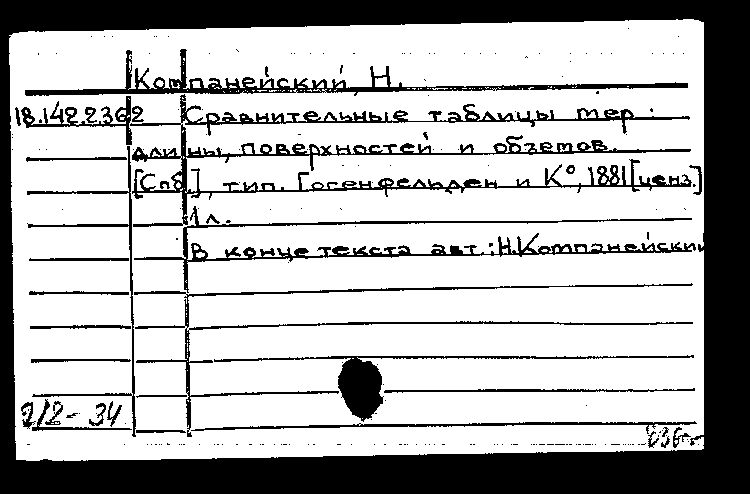 Компанейский, Н.
18.142.2362 Сравнительные таблицы мер:
длины, поверхностей и объемов.
[Спб], тип. Гогенфельден и К°, 1881 [ценз.]
1 л.
В конце текста авт.: Н. Компанейский
2/2 - 34